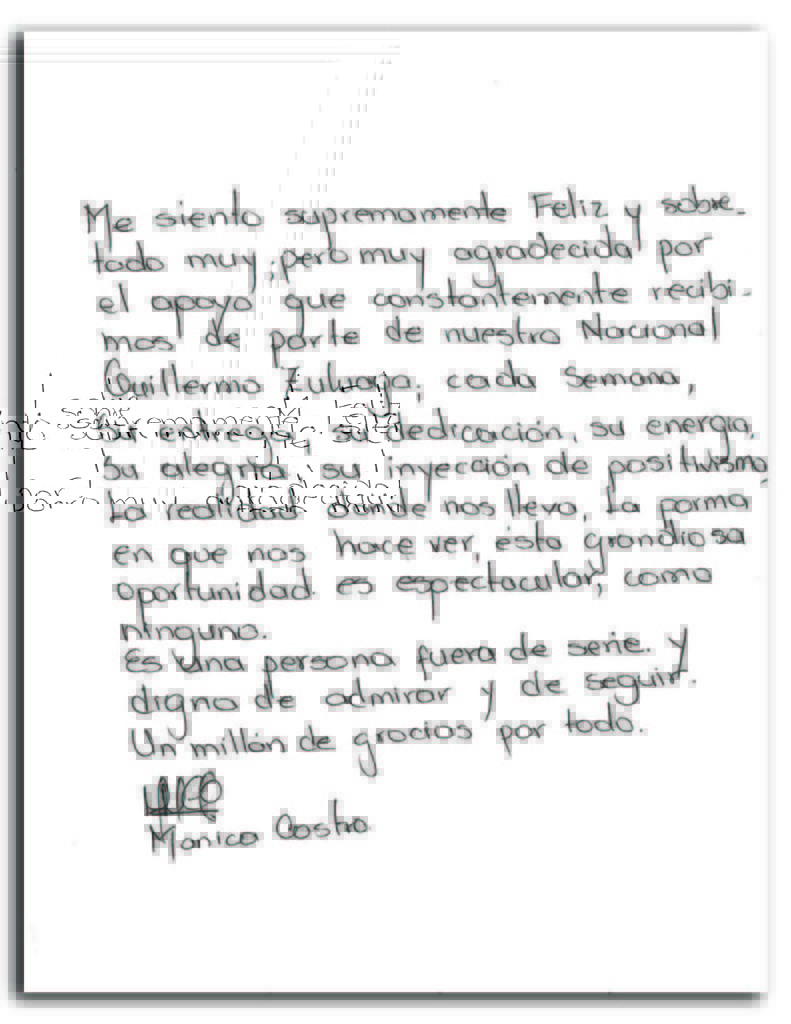 Me siento supremamente Feliz y sobre-
todo muy, pero muy agradecida por
el apoyo que constantemente recibi-
mos de parte de nuestro Nacional
Guillermo Zuluaga; cada semana,
su entrega, su dedicación, su energia,
su alegria, su inyección de positivismo,
La realidad donde nos lleva, La forma
en que nos hace ver, ésta grandiosa
oportunidad es espectacular, como
ninguno.
Es una persona fuera de serie. y
digna de admirar y de seguir.
Un millón de gracias por todo.
Monica Castro